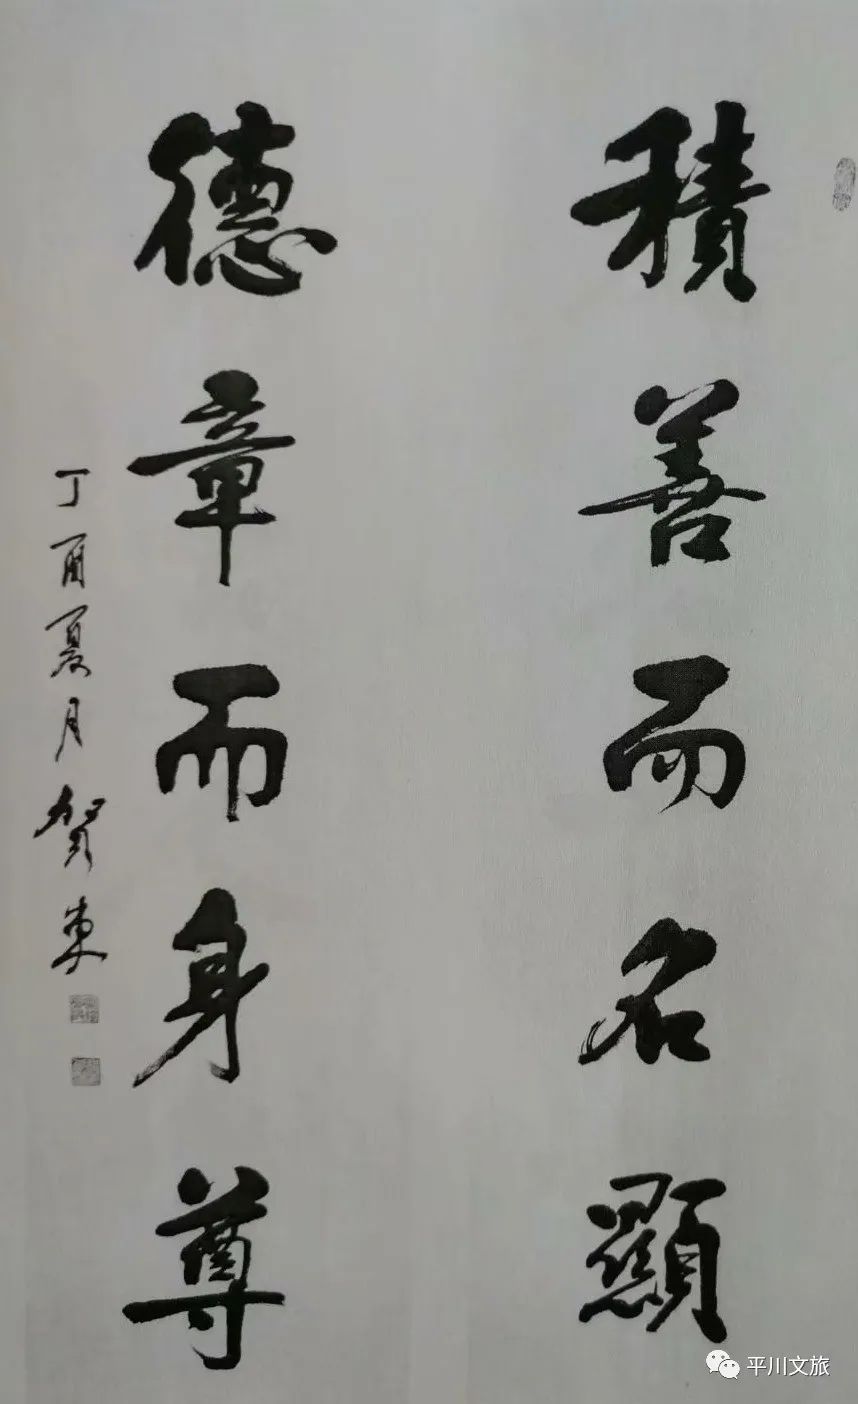 積善而名顯
德章而身尊
丁酉夏月賀東
平川文旅